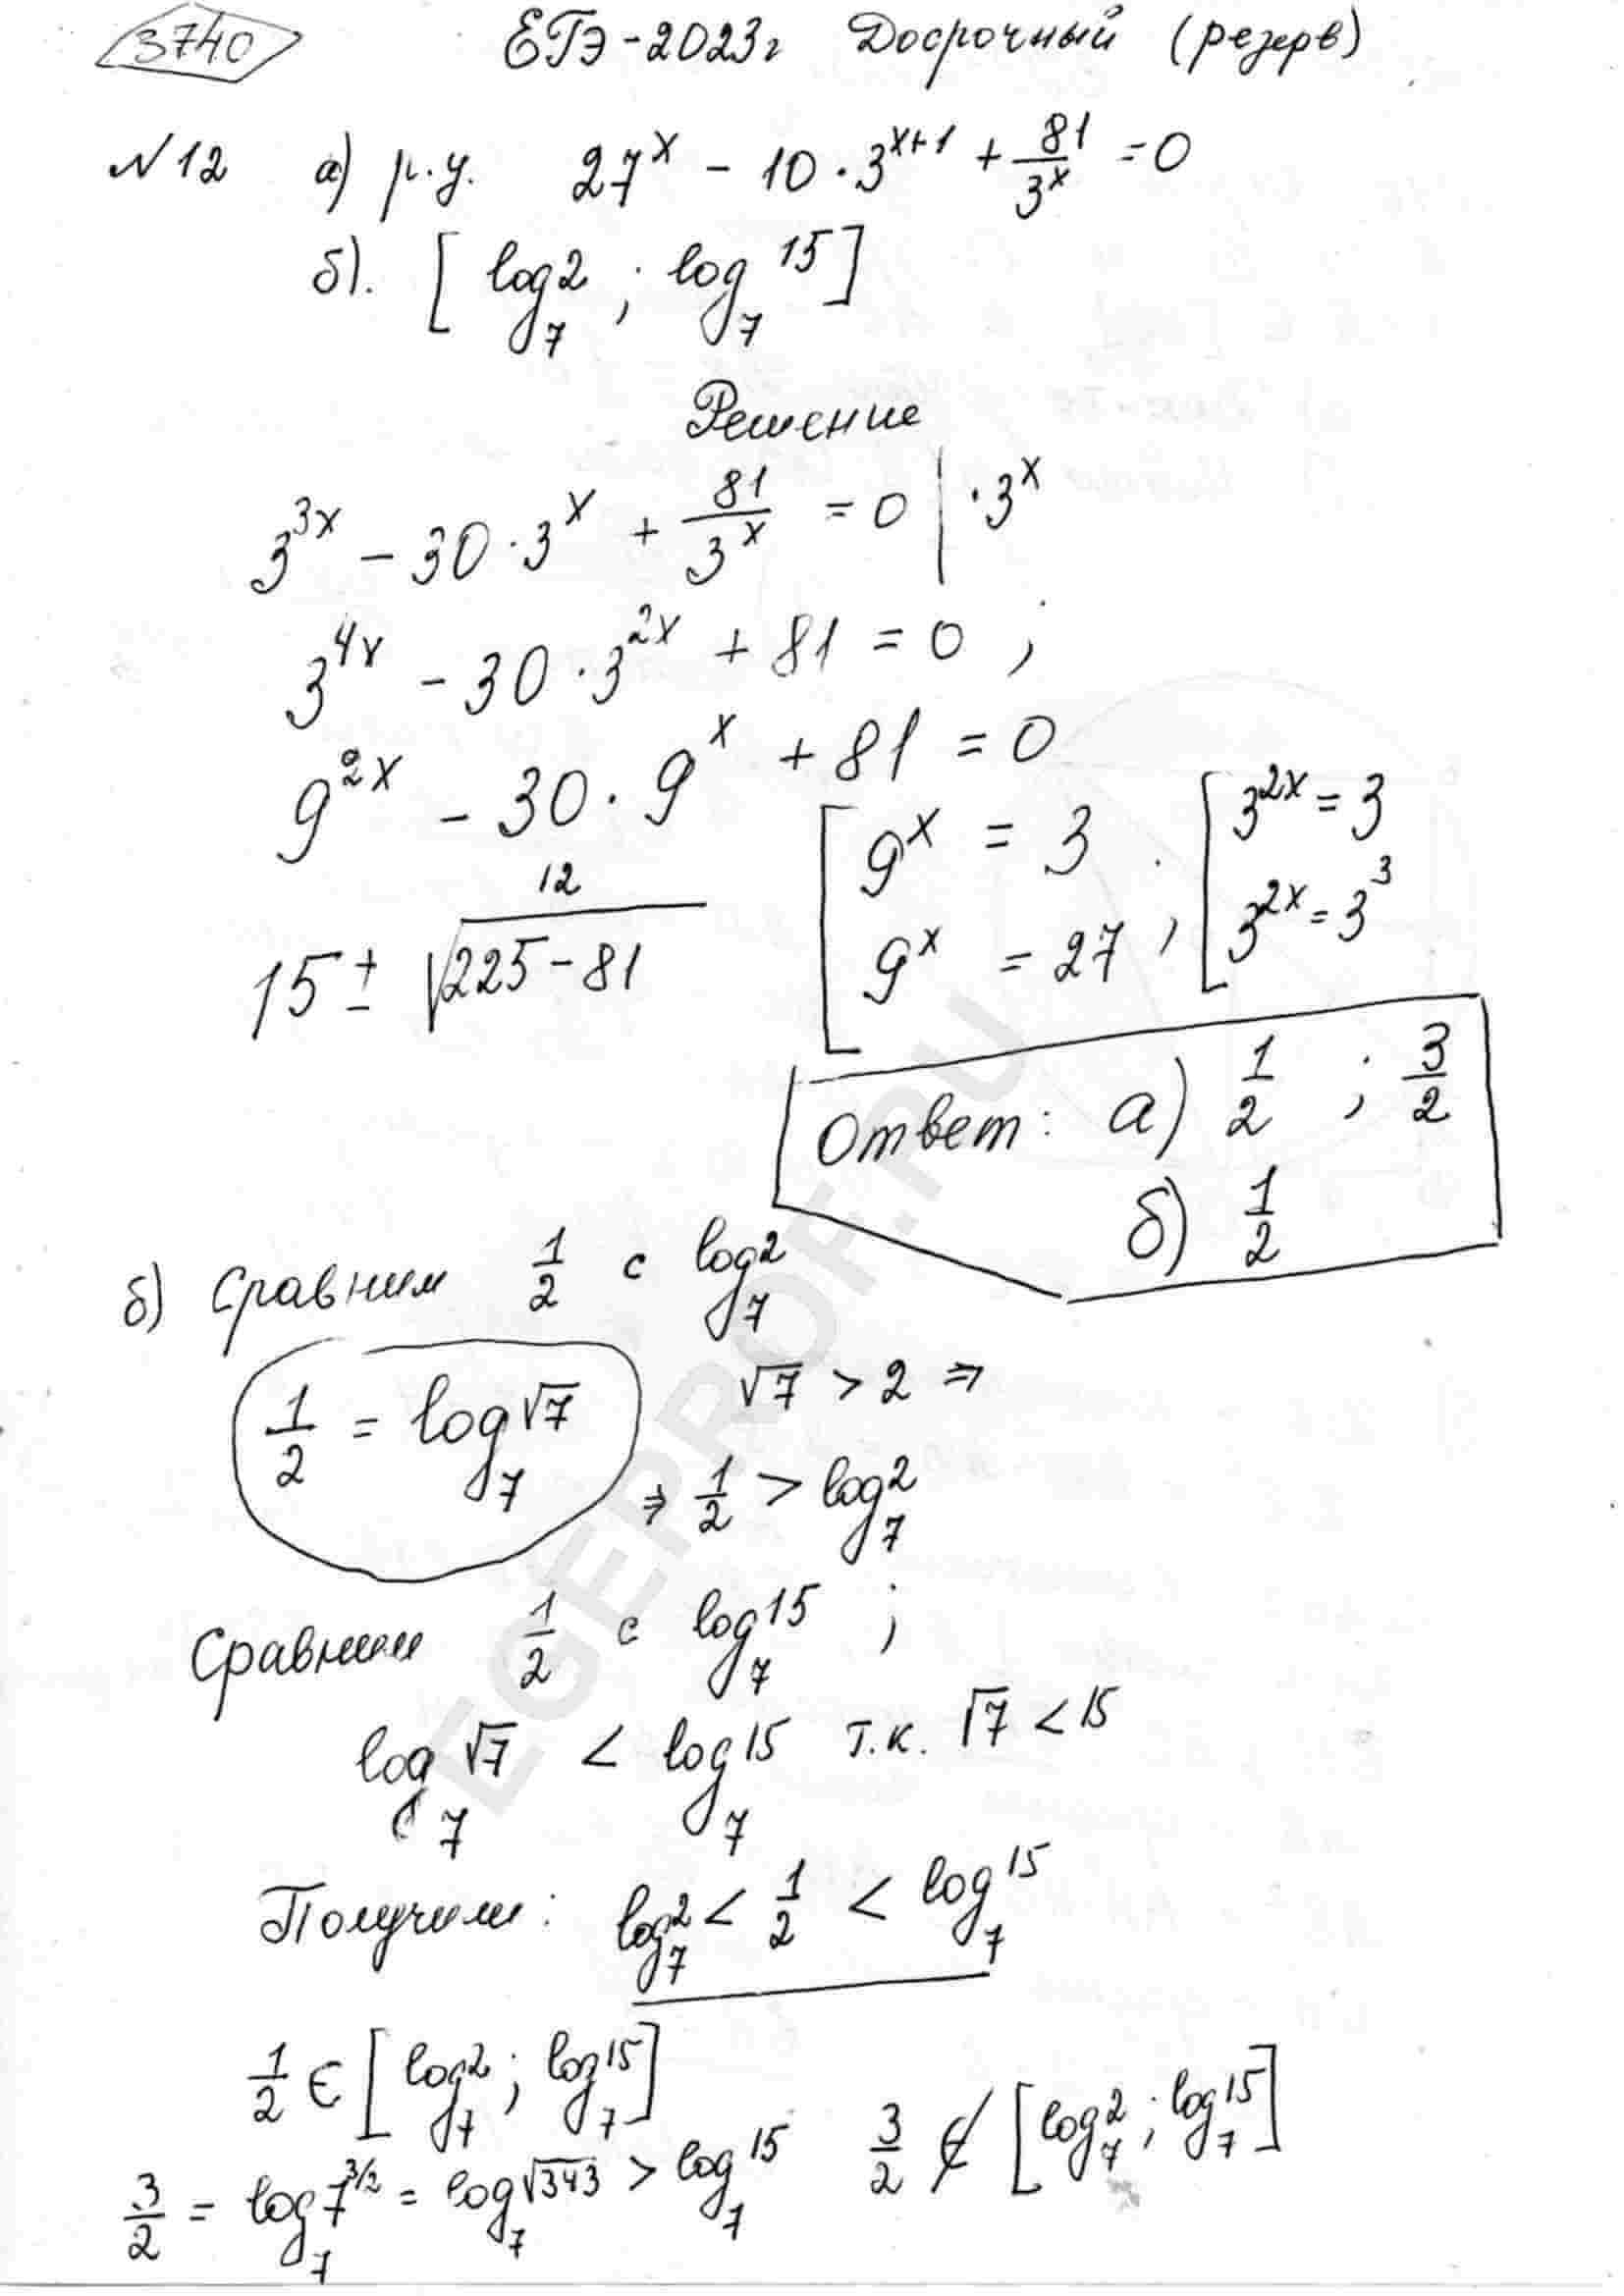 3740 ЕГЭ-2023г Досрочный (резерв)
№12 а) р.у. 27^x - 10·3^{x+1} + 81/3^x = 0
б). [log_7 2; log_7 15]
Решение
3^{3x} - 30·3^x + 81/3^x = 0 | ·3^x
3^{4x} - 30·3^{2x} + 81 = 0;
9^{2x} - 30·9^x + 81 = 0
12
15 ± √(225-81) [9^x = 3 9^x = 27; [3^{2x} = 3 3^{2x} = 3^3
Ответ: а) 1/2; 3/2
б) 1/2
б) Сравним 1/2 с log_7 2
1/2 = log_7 √7 √7 > 2 ⇒
⇒ 1/2 > log_7 2
Сравним 1/2 с log_7 15;
log_7 √7 < log_7 15 т.к. √7 < 15
Получим: log_7 2 < 1/2 < log_7 15
1/2 ∈ [log_7 2; log_7 15]
3/2 = log_7 7^{3/2} = log_7 √343 > log_7 15 3/2 ∉ [log_7 2; log_7 15]
EGEPROF.RU